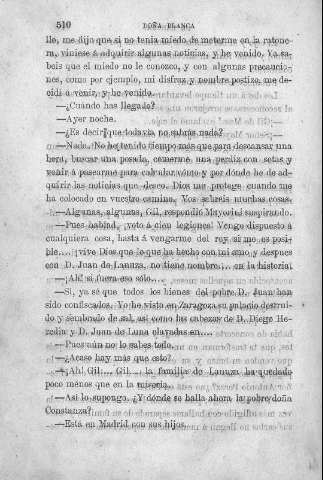 510 DOÑA BLANCA
lle, me dijo que si no tenia miedo de meterme en la ratone-
ra, viniese á adquirir algunas noticias, y he venido. Ya sa-
beis que el miedo no le conozco, y con algunas precaucio-
nes, como por ejemplo, mi disfraz y nombre postizo, me de-
cidí á venir, y he venido.
—¿Cuándo has llegado?
—Ayer noche.
—¿Es decir que todavia no sabrás nada?
—Nada. No he tenido tiempo más que para descansar una
hora, buscar una posada, comerme una perdiz con setas y
venir á pasearme para calcular cómo y por dónde he de ad-
quirir las noticias que deseo. Dios me protege cuando me
ha colocado en vuestro camino. Vos sabreis muchas cosas.
—Algunas, algunas, Gil, respondió Mayorini suspirando.
—Pues hablad, ¡voto á cien legiones! Vengo dispuesto á
cualquiera cosa, hasta á vengarme del rey si me es posi-
ble.... ¡vive Dios que lo que ha hecho con mi amo y despues
con D. Juan de Lanuza, no tiene nombre.... en la historia!
—¡Ah! si fuera eso sólo....
—Si, ya sé que todos los bienes del pobre D. Juan han
sido confiscados. Yo he visto en Zaragoza su palacio destrui-
do y sembrado de sal, así como las cabezas de D. Diego He-
redia y D. Juan de Luna clavadas en....
—Pues aún no lo sabes todo.
—¿Acaso hay más que esto?
—¡Ah! Gil.... Gil.... la familia de Lanuza ha quedado
poco ménos que en la miseria.
—Así lo supongo. ¿Y dónde se halla ahora la pobre doña
Constanza?
—Está en Madrid con sus hijos.